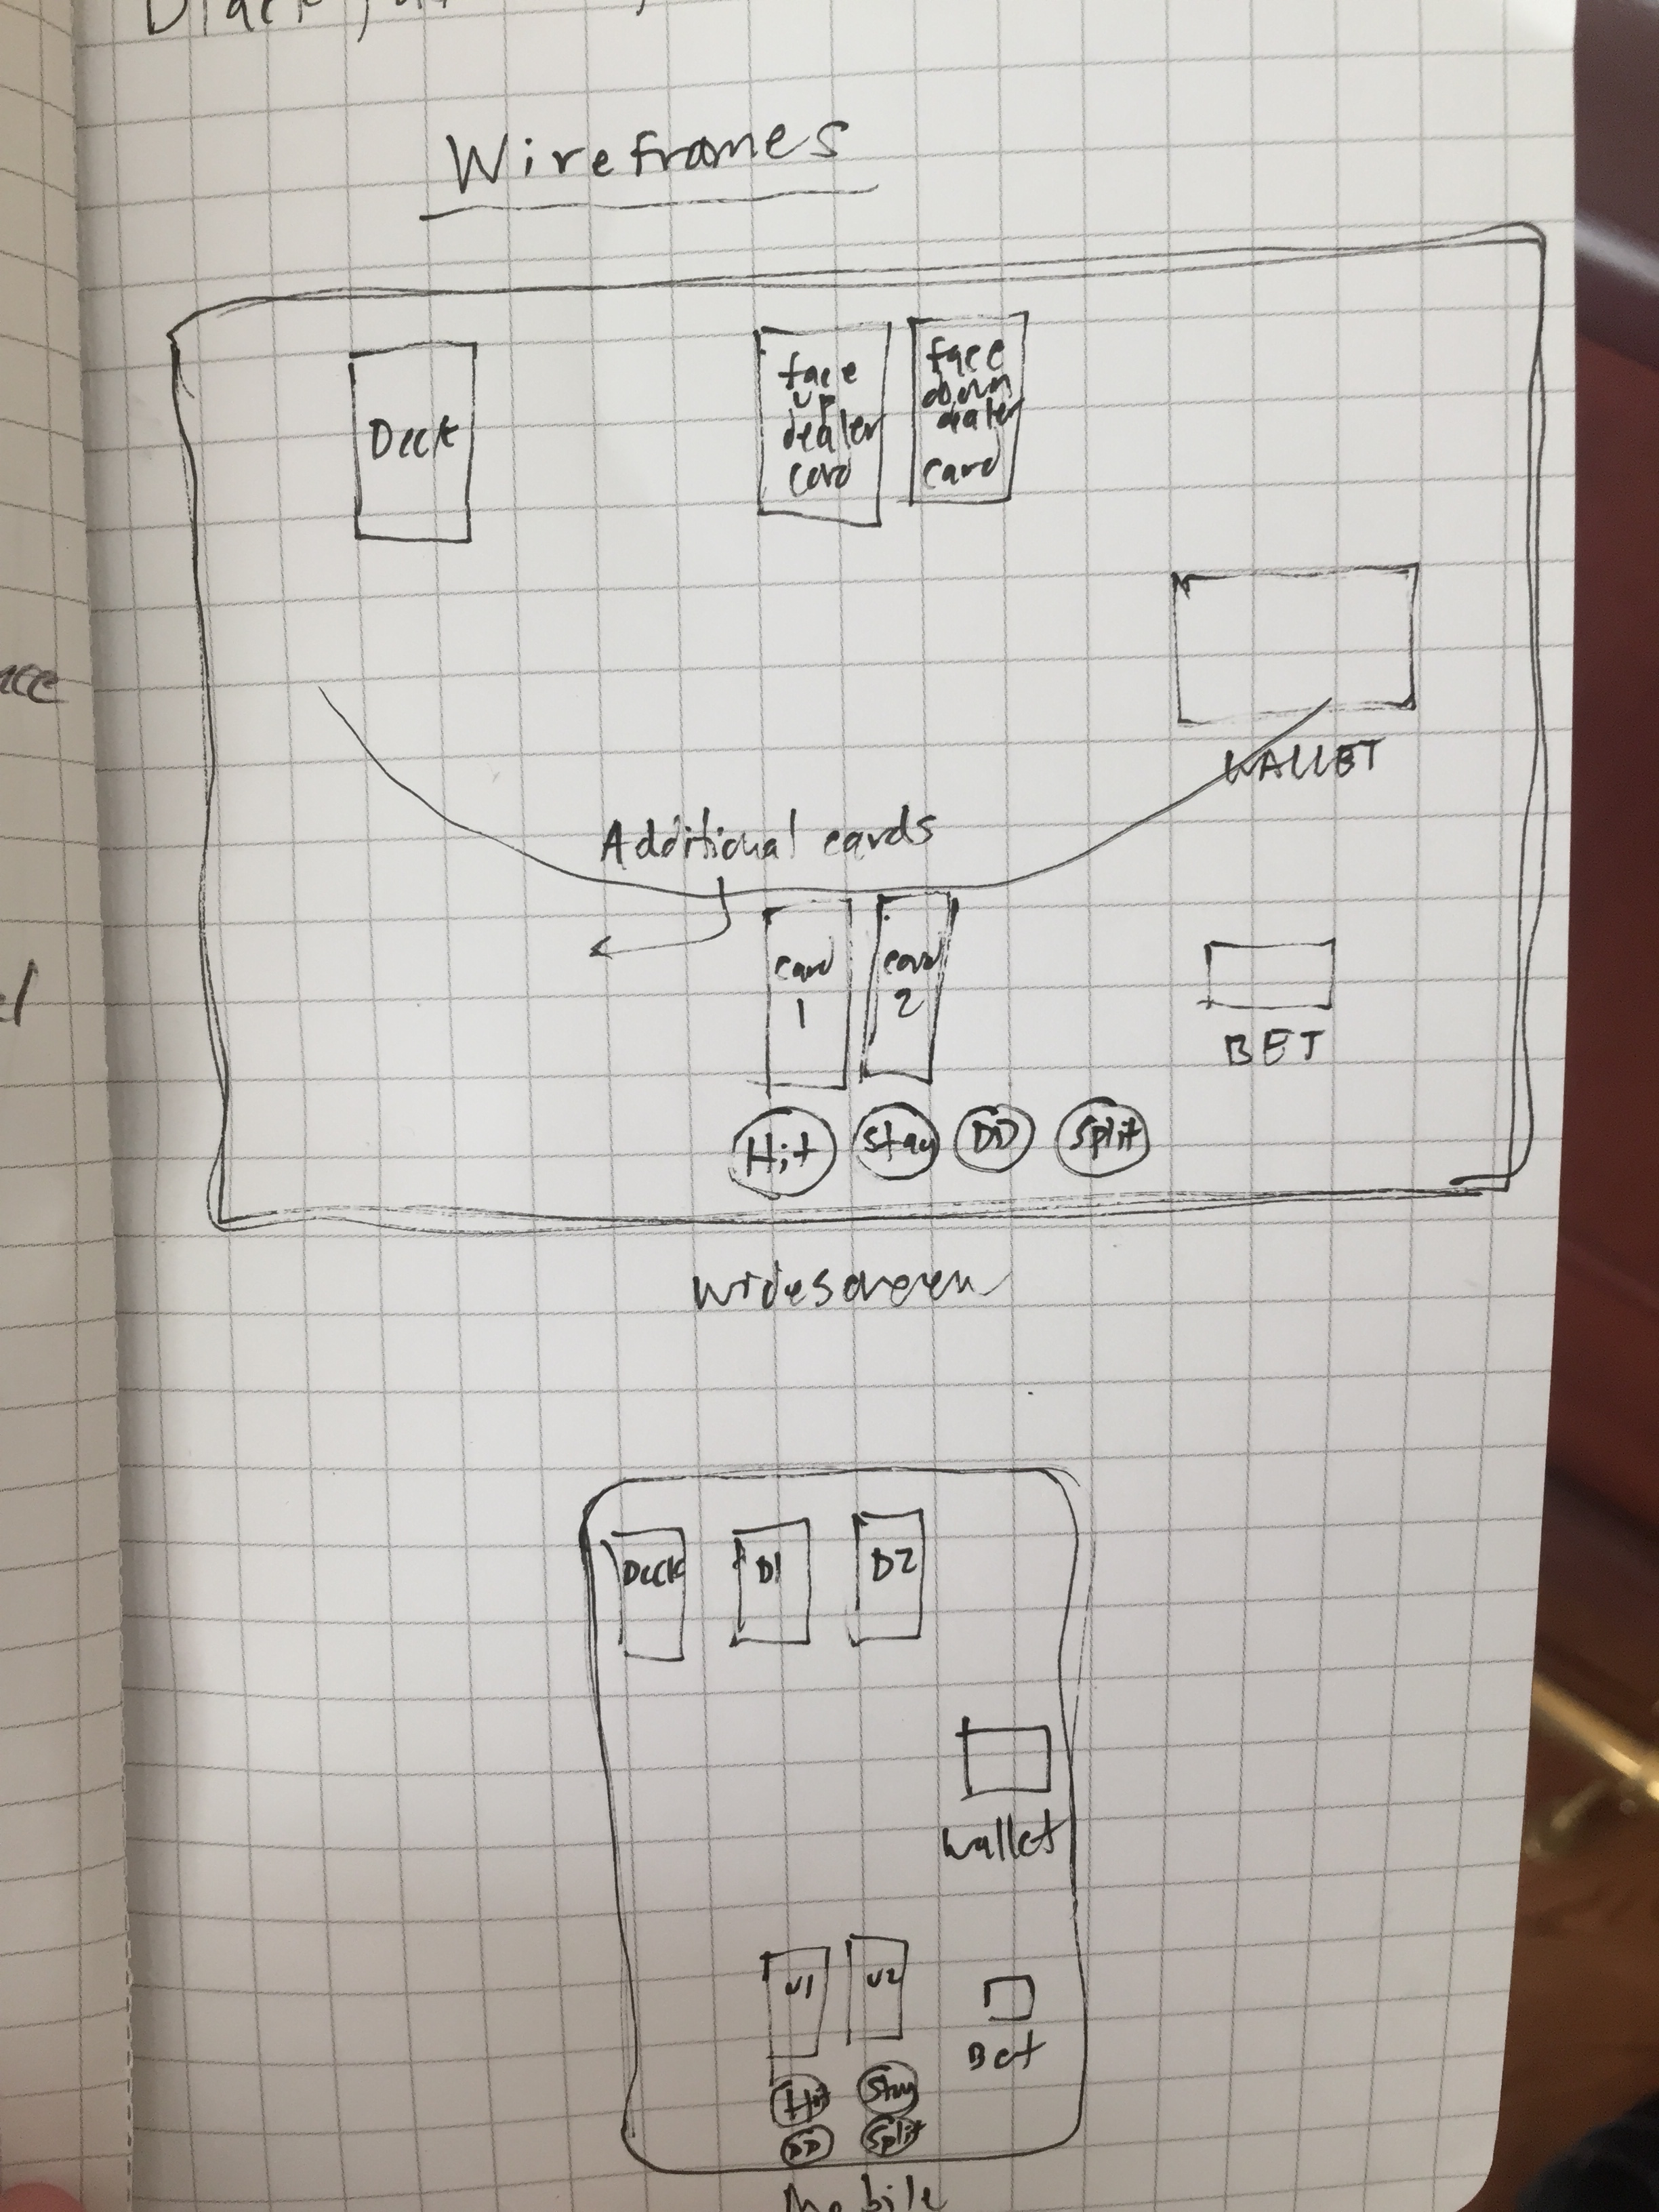 Wireframes
Deck
face
up
dealer
card
face
down
dealer
card
WALLET
Additional cards
card
1
card
2
BET
Hit
Stay
DD
Split
widescreen
Deck
D1
D2
Wallet
U1
U2
Bet
Hit
Stay
DD
Split
Mobile